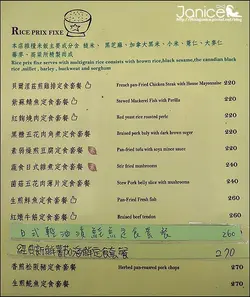 Janice
RICE PRIX FIXE
本店雜糧米飯主要成分含 糙米、黑芝麻、加拿大黑米、小米、薏仁、大麥仁
蕎麥、高粱所精製而成
Rice prix fixe serves with multigrain rice consists with brown rice,black sesame,the canadian black
rice ,millet , barley , buckweat and sorghum
定食套餐 Fresh pan-Fried Chicken Steak with House Mayonnaise 220
紫蘇 定食套餐 Stewed Mackerel Fish with Perilla 220
紅麴燒肉定食套餐 Red yeast rice roasted pork 220
黑糖五花肉角煮定食套餐 Braised pork belly with dark brown sugar 220
定食套餐 Pan-fried tofu with soya mince sauce 220
蔬食日式雜煮定食套餐 Stir fried mushrooms 240
菌菇五花肉薄片定食套餐 Stew Pork belly slice with mushrooms 240
生煎鮮魚定食套餐 Pan-Fried Fresh fish 260
紅燒牛筋定食套餐 Braised beef tendon 260
日式 油漬鮭魚定食套餐 260
定食套餐 270
香煎松阪豬定食套餐 Herbed pan-seared pork chops 270
生煎鮭魚定食套餐 270